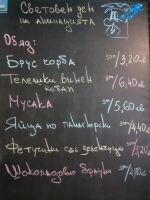 Световен ден
на авиацията
Обяд:
Брус чорба 3,20лв
Телешки винен
кебап 6,40лв
Мусака 5,60лв
Яйца по панагюрски 4,40лв
Фетучини със зеленчуци 5,20
Шоколадово брауни 4,80лв